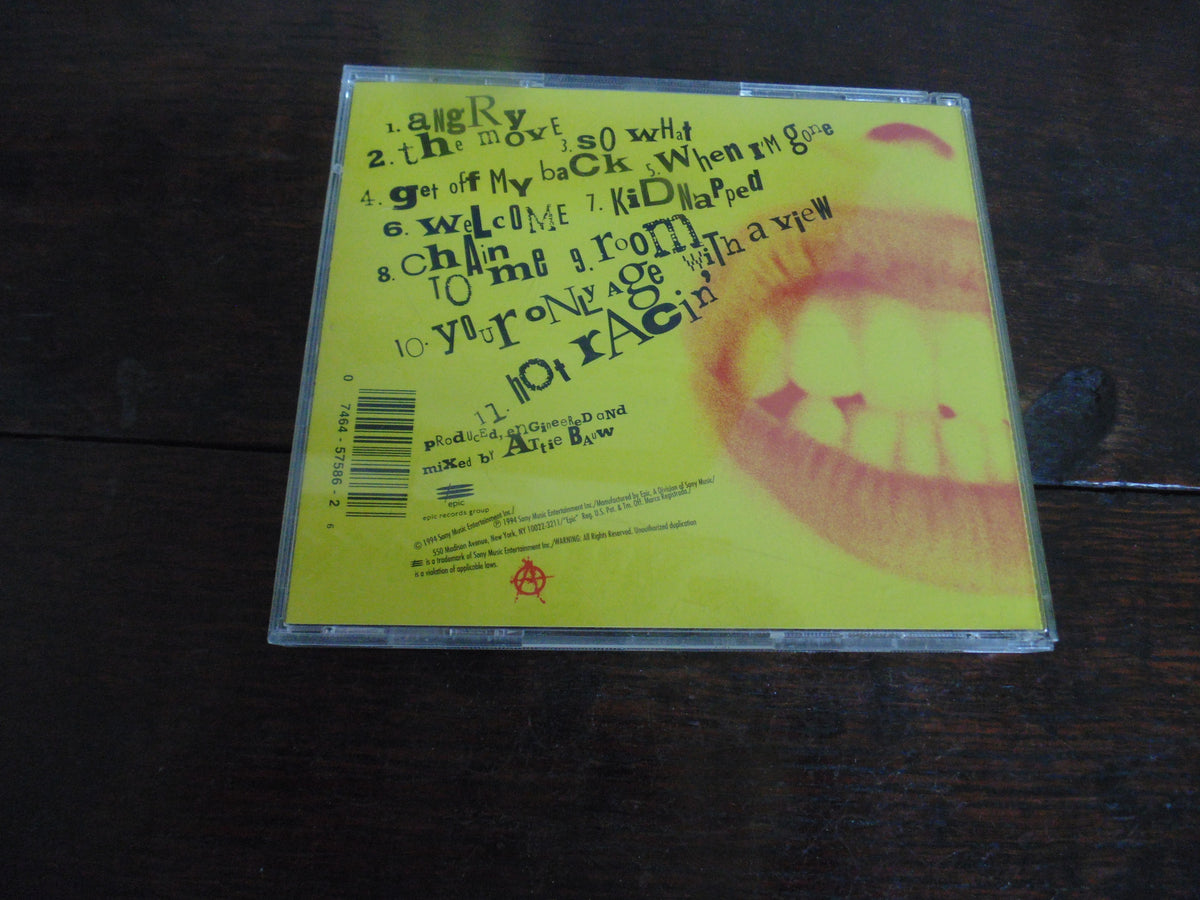 1. angRy
2. the movE 3. sO wHat
4. get off My baCk 5. When I'M gone
6. weLcOME 7. KiDNaPped
8. ChAin TO me 9. room with a view
10. yOurONLy Age
11. hOt rACin'
pRoduCEd, enGineeReD anD
mixed by ATtie BAuw
epic
epic records group
© 1994 Sony Music Entertainment Inc./
℗ 1994 Sony Music Entertainment Inc./Manufactured by Epic, A Division of Sony Music/
550 Madison Avenue, New York, NY 10022-3211/"Epic" Reg. U.S. Pat. & Tm. Off. Marca Registrada./
is a trademark of Sony Music Entertainment Inc./WARNING: All Rights Reserved. Unauthorized duplication
is a violation of applicable laws.
0 7464-57586-2 6